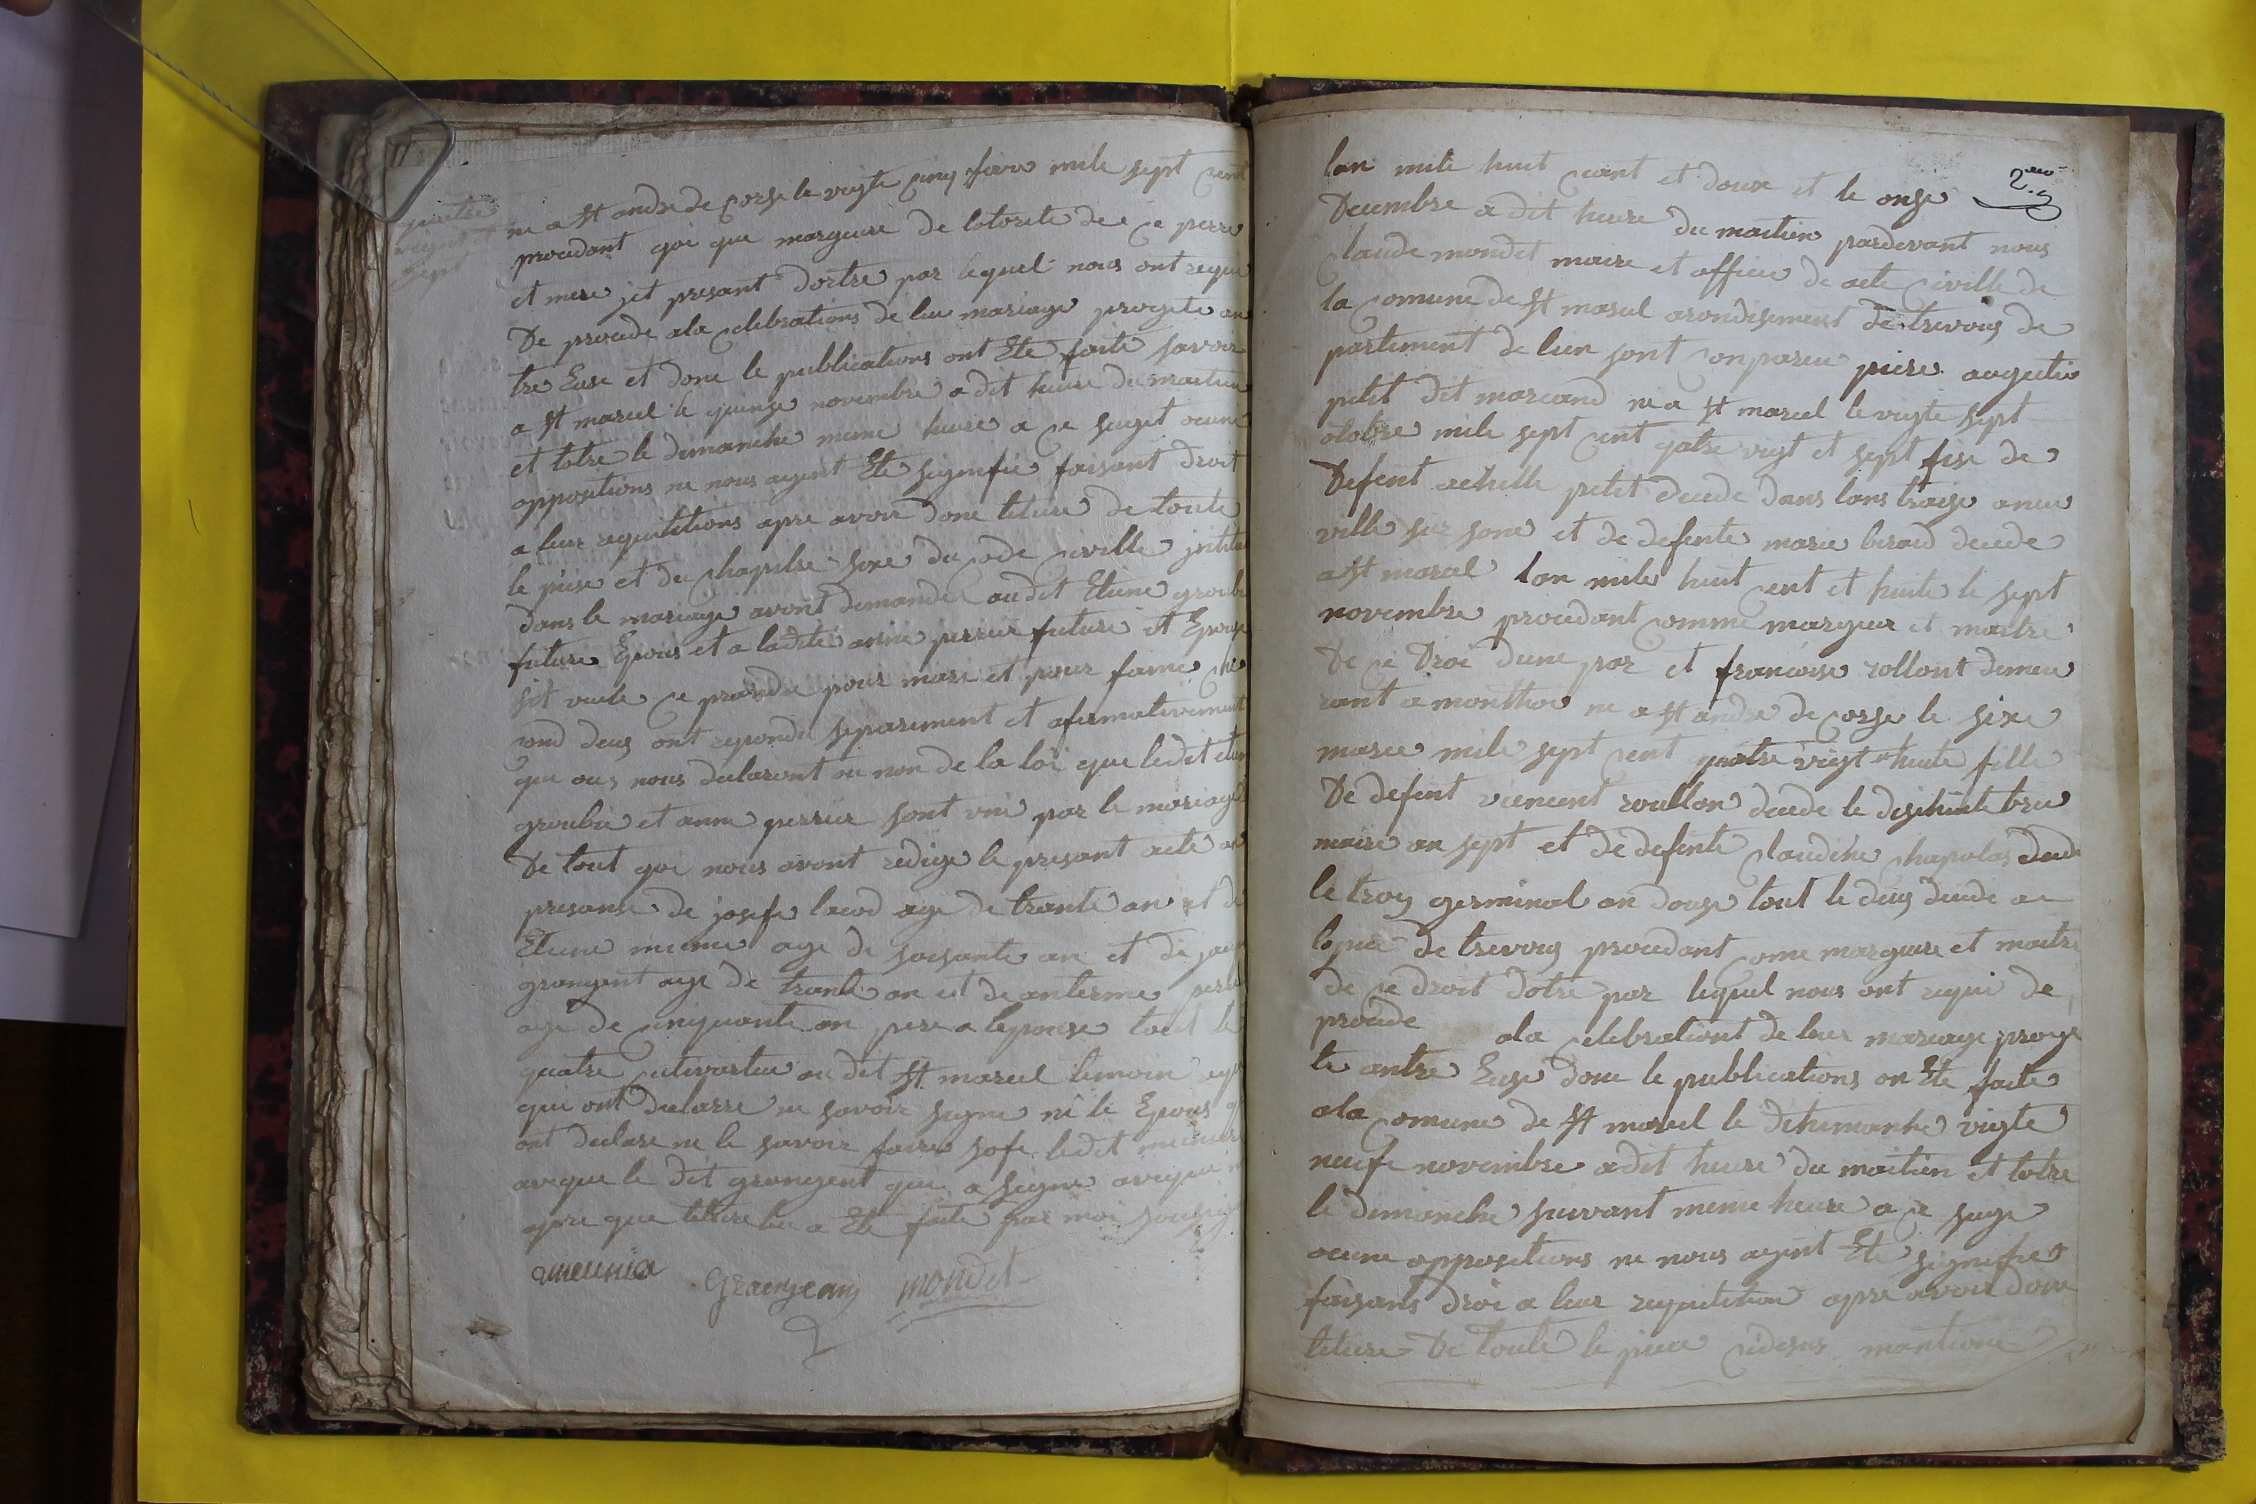 quatre
vingt et
sept
ne a st andre de corse le vigte cinq fevre mile sept cent
procedant qoi que margeure de lotorite de ce perre
et mere jet presant dortre par lequel nous ont requi
De procede ala celebrations de leur mariage progete an
tre Euse et done le publications ont Ete faite savoir
a st marcel le quinse novembre a dit heure du maitin
et lotre le dimanche meme heure a ce suget ocune
oppositions ne nous ayent Ete signefie faisant droit
a leur requititions apre avoir done leture de toute
le piese et du chapitre sixe du code civille jntitu
dans le mariage avont demande audit Etiene groubi
future Epous et a ladite anne perrier future et Epouse
sit veule ce prandre pour mari et pour fame
cond deus ont reponde separement et afermativement
que ous nous declaront ou non de la loi que ledit etien
groubie et anne perrier sont uni par le mariage
De tout qoi nous avont redige le presant acte an
presanse de josefe lacod age de trante an et de
Etiene meunie age de soisante an et de jan
grangent age de trante an et de anterme perie
age de cinquante an pere a lepouse tout le
quatre cutivarteur au dit st marcel temoin
qui ont declarre ne savoir signe ni le Epous
ont declare ne le savoir faire sofe ledit meunier
aveque le dit grangent que a signe aveque
apre que leture leu a Ete faite par moi sousigne
meunier Granjean mondet
2me
lan mile huit cant et douse et le onse
Decembre a dit heure du maitien pardevant nous
claude mondet maire et officie de acte civille de
la comune de st marcel arondisement de trevous de
partement de lien sont conpareu pierre augustin
petit dit marcand ne a st marcel le vigte sept
otobre mile sept cent qatre vigt et sept fise de
Defent achille petit decede dans lans traise a neu
ville sur sone et de defente marie beraud decede
a st marcel lan mile huit cent et huite le sept
novembre procedant comme margeur et maitre
De ce Droi dune par et francoise rollont demeu
rant a monthoe ne a st andre de corse le sixe
marce mile sept cent quatre vigt huite fille
De defent viencent roullon decede le disehuite bru
maire an sept et de defente claudine chapolas decede
le troy germinal an douse tout le deus decede a
lopica de trevous procedant come margeure et maitre
de ce droit dotre par lequel nous ont requi de
procede ala celebrationt de leur mariage proge
te antre Euse done le publications on Ete faite
ala comune de st marcel le dehimanhe vigte
neufe novembre a dit heure du maitien et lotre
le dimanche suivant meme heure a ce suge
ocune oppositions ne nous ayent Ete signefie
faisans droi a leur requitition apre avoir done
leture De toute le piece cidesus mantione